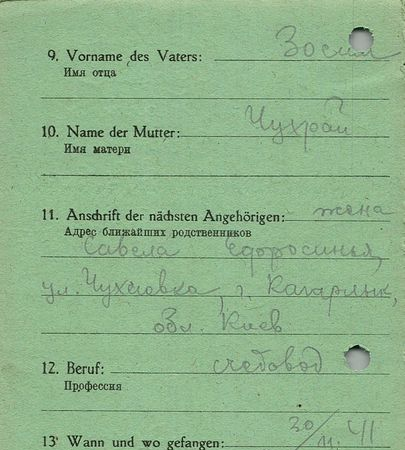 9. Vorname des Vaters: Зосим
Имя отца
10. Name der Mutter: Чухрай
Имя матери
11. Anschrift der nächsten Angehörigen: жена
Адрес ближайших родственников
Савела
ул. г. Кагарлык,
обл. Киев
12. Beruf: счетовод
Профессия
13. Wann und wo gefangen: 30/11. 41